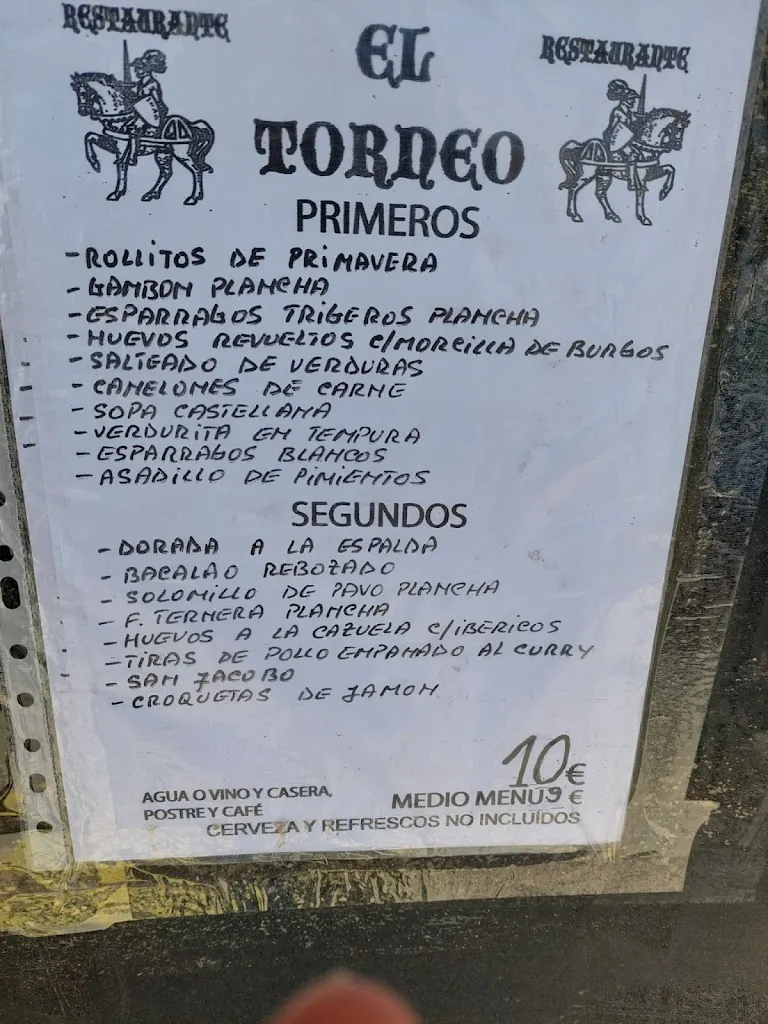 RESTAURANTE
EL
RESTAURANTE
TORNEO
PRIMEROS
- ROLLITOS DE PRIMAVERA
- GAMBON PLANCHA
- ESPARRAGOS TRIGEROS PLANCHA
- HUEVOS REVUELTOS C/MORCILLA DE BURGOS
- SALTEADO DE VERDURAS
- CANELONES DE CARNE
- SOPA CASTELLANA
- VERDURITA EN TEMPURA
- ESPARRAGOS BLANCOS
- ASADILLO DE PIMIENTOS
SEGUNDOS
- DORADA A LA ESPALDA
- BACALAO REBOZADO
- SOLOMILLO DE PAVO PLANCHA
- F. TERNERA PLANCHA
- HUEVOS A LA CAZUELA C/IBERICOS
- TIRAS DE POLLO EMPANADO AL CURRY
- SAN JACOBO
- CROQUETAS DE JAMON
10€
AGUA O VINO Y CASERA,
MEDIO MENÚ 9 €
POSTRE Y CAFÉ
CERVEZA Y REFRESCOS NO INCLUÍDOS